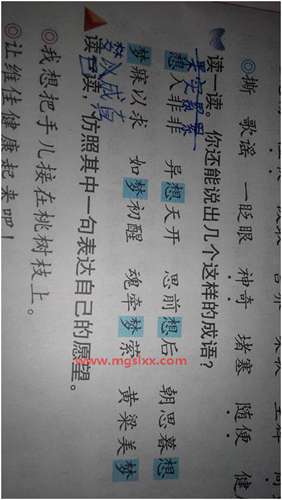 ◎撕 歌谣 一眨眼 神奇 堵塞 随便 健
读一读。你还能说出几个这样的成语?
想入非非 异想天开 思前想后 朝思暮想
梦寐以求 如梦初醒 魂牵梦萦 黄粱美梦
读一读,仿照其中一句表达自己的愿望。
◎我想把手儿接在桃树枝上。
◎让维佳健康起来吧!
www.mgslxx.com